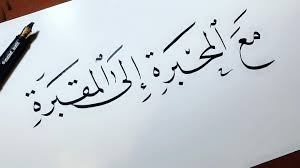 مَعَ ٱلْمَحْبَرَةِ إِلَى ٱلْمَقْبَرَةِ